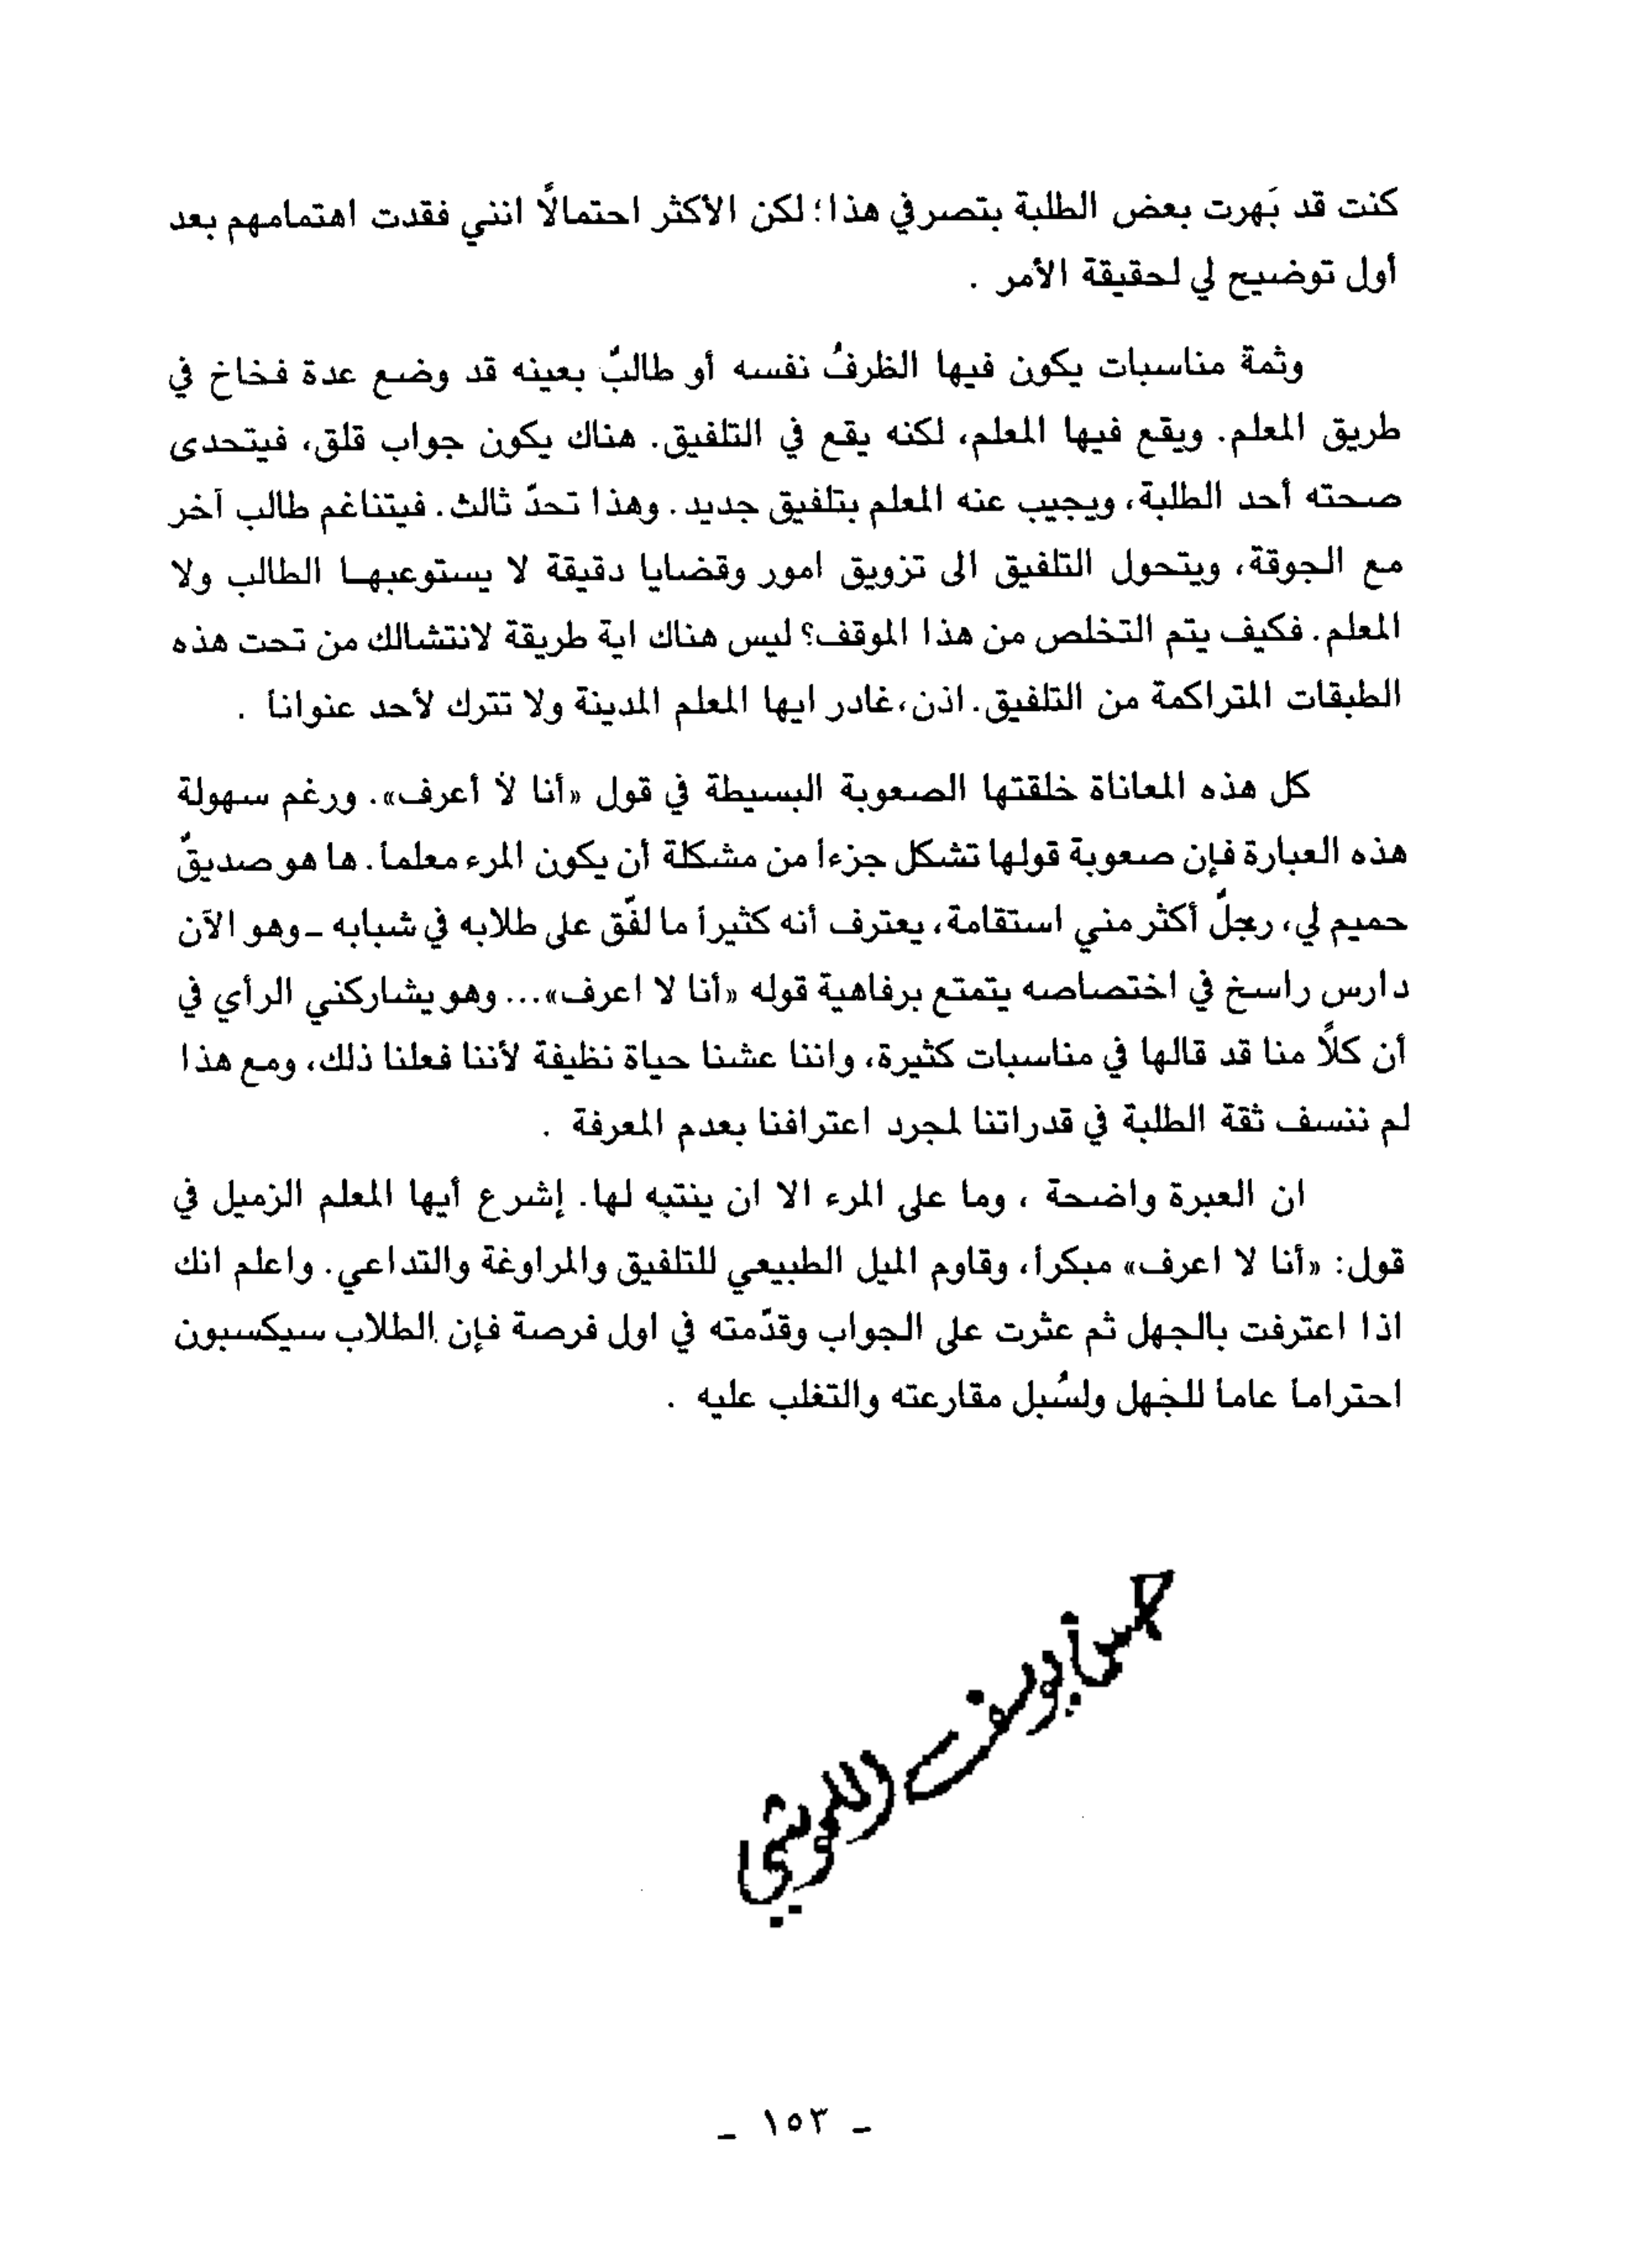 كنت قد بَهرت بعض الطلبة بتصرفي هذا؛ لكن الأكثر احتمالًا انني فقدت اهتمامهم بعد
أول توضيح لي لحقيقة الأمر .
وثمة مناسبات يكون فيها الظرفُ نفسه أو طالبٌ بعينه قد وضع عدة فخاخ في
طريق المعلم. ويقع فيها المعلم، لكنه يقع في التلفيق. هناك يكون جواب قلق، فيتحدى
صحته أحد الطلبة، ويجيب عنه المعلم بتلفيق جديد. وهذا تحدّ ثالث. فيتناغم طالب آخر
مع الجوقة، ويتحول التلفيق الى تزويق امور وقضايا دقيقة لا يستوعبها الطالب ولا
المعلم. فكيف يتم التخلص من هذا الموقف؟ ليس هناك اية طريقة لانتشالك من تحت هذه
الطبقات المتراكمة من التلفيق. اذن، غادر ايها المعلم المدينة ولا تترك لأحد عنوانا .
كل هذه المعاناة خلقتها الصعوبة البسيطة في قول «أنا لا أعرف». ورغم سهولة
هذه العبارة فإن صعوبة قولها تشكل جزءاً من مشكلة أن يكون المرء معلماً. ها هو صديقٌ
حميم لي، رجلٌ أكثر مني استقامة، يعترف أنه كثيراً ما لفّق على طلابه في شبابه ـ وهو الآن
دارس راسخ في اختصاصه يتمتع برفاهية قوله «أنا لا اعرف»... وهو يشاركني الرأي في
أن كلًا منا قد قالها في مناسبات كثيرة، واننا عشنا حياة نظيفة لأننا فعلنا ذلك، ومع هذا
لم ننسف ثقة الطلبة في قدراتنا لمجرد اعترافنا بعدم المعرفة .
ان العبرة واضحة ، وما على المرء الا ان ينتبه لها. إشرع أيها المعلم الزميل في
قول: «أنا لا اعرف» مبكراً، وقاوم الميل الطبيعي للتلفيق والمراوغة والتداعي. واعلم انك
اذا اعترفت بالجهل ثم عثرت على الجواب وقدّمته في اول فرصة فإن الطلاب سيكسبون
احتراماً عاماً للجهل ولسُبل مقارعته والتغلب عليه .
يوسف
ـ ١٥٣ ـ